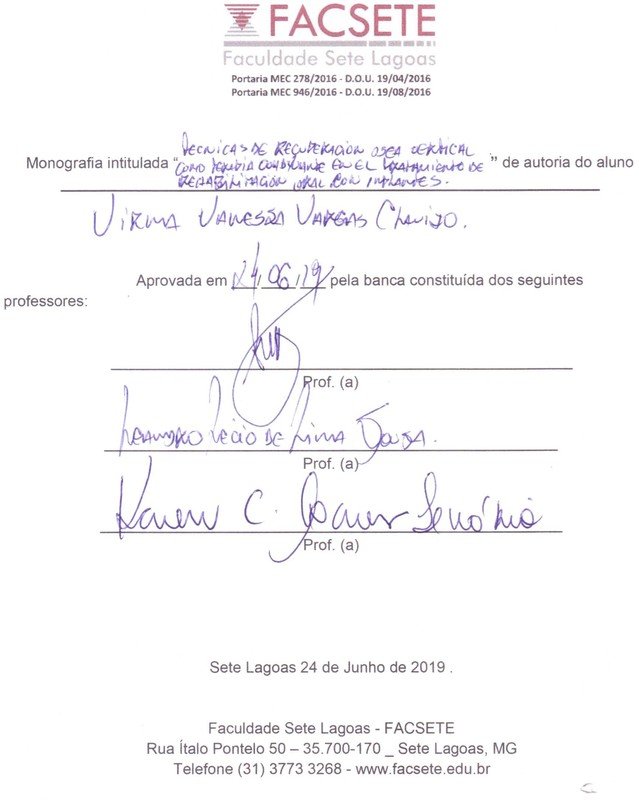 FACSETE
Faculdade Sete Lagoas
Portaria MEC 278/2016 - D.O.U. 19/04/2016
Portaria MEC 946/2016 - D.O.U. 19/08/2016
TECNICAS DE RECUPERACION OSEA VERTICAL
Monografia intitulada “COMO TERAPIA COADYUVANTE EN EL TRATAMIENTO DE” de autoria do aluno
REHABILITACIÓN ORAL CON IMPLANTES.
VIRMA VANESSA VARGAS CLAVIJO.
Aprovada em 24/06/19 pela banca constituída dos seguintes
professores:
Prof. (a)
LEANDRO LÉCIO DE LIMA SOUSA.
Prof. (a)
Karen C.
Prof. (a)
Sete Lagoas 24 de Junho de 2019 .
Faculdade Sete Lagoas - FACSETE
Rua Ítalo Pontelo 50 – 35.700-170 _ Sete Lagoas, MG
Telefone (31) 3773 3268 - www.facsete.edu.br